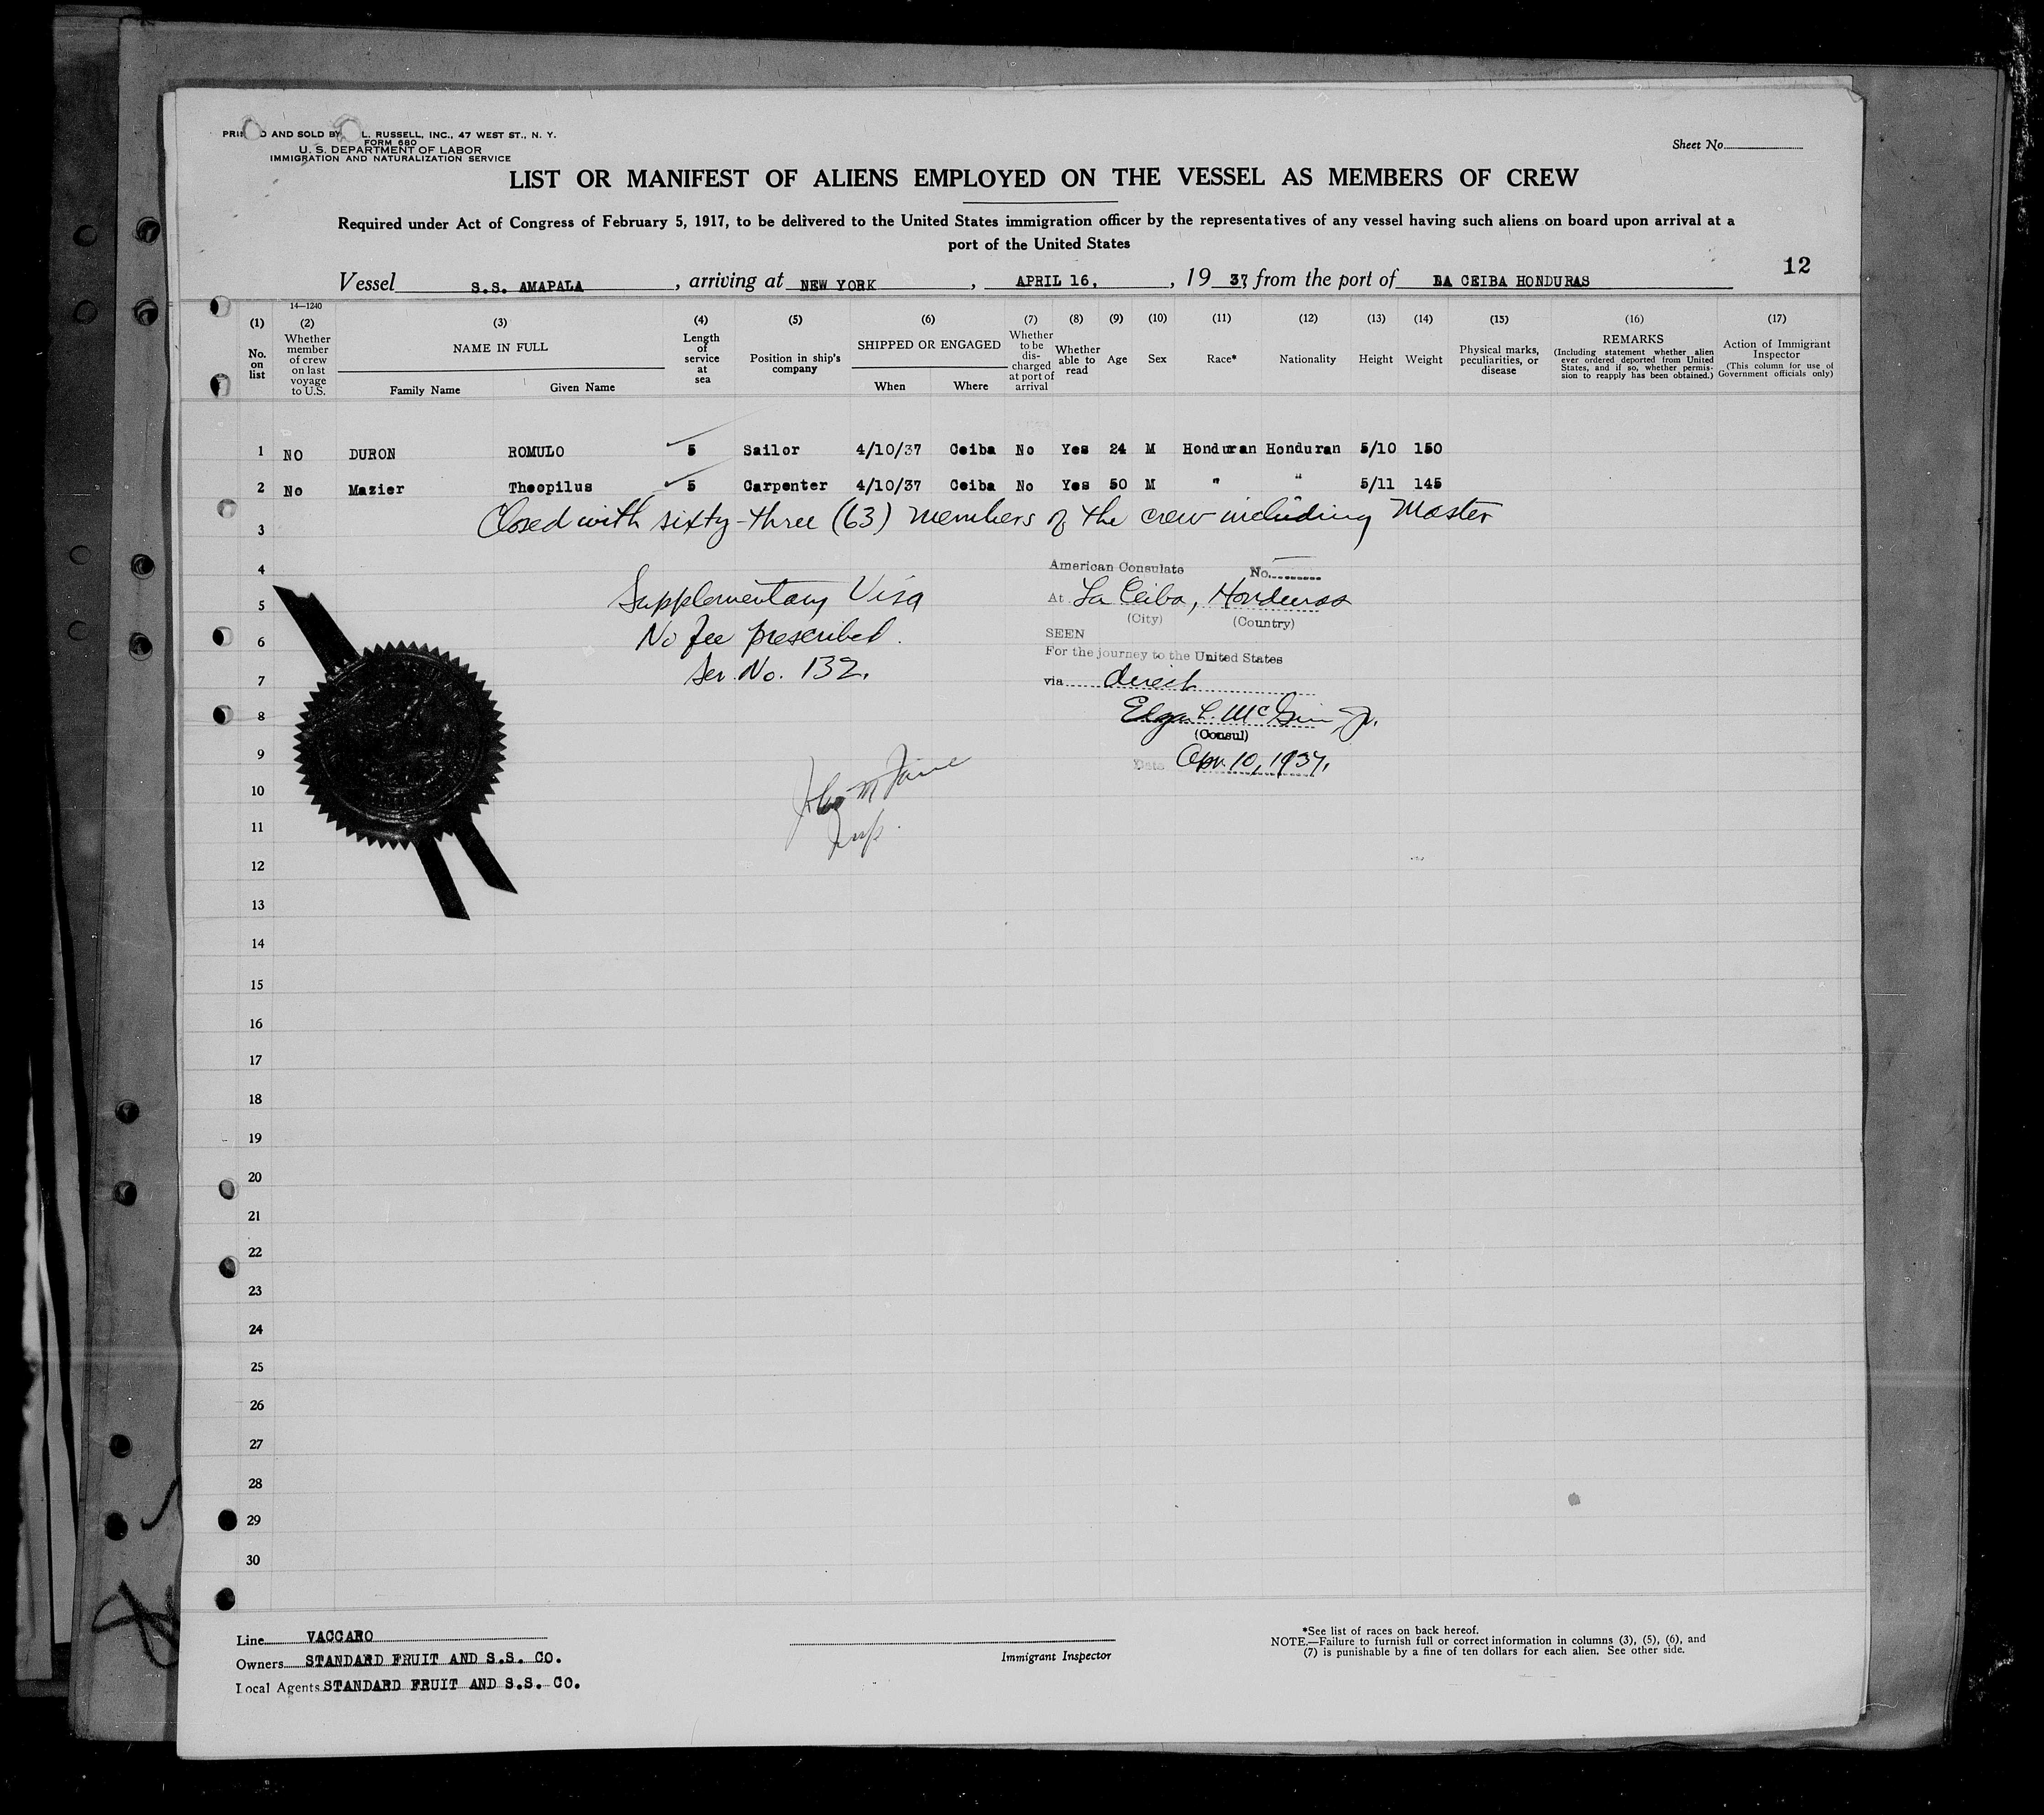 AND SOLD BY L. RUSSELL, INC., 47 WEST ST., N. Y.
FORM 680
U. S. DEPARTMENT OF LABOR
IMMIGRATION AND NATURALIZATION SERVICE
Sheet No.
LIST OR MANIFEST OF ALIENS EMPLOYED ON THE VESSEL AS MEMBERS OF CREW
Required under Act of Congress of February 5, 1917, to be delivered to the United States immigration officer by the representatives of any vessel having such aliens on board upon arrival at a
port of the United States
12
Vessel S.S. AMAPALA, arriving at NEW YORK, APRIL 16, , 19 37 from the port of LA CEIBA HONDURAS
14—1240
(1) (2) (3) (4) (5) (6) (7) (8) (9) (10) (11) (12) (13) (14) (15) (16) (17)
No. on list
Whether member of crew on last voyage to U.S.
NAME IN FULL
Family Name Given Name
Length of service at sea
Position in ship's company
SHIPPED OR ENGAGED
When Where
Whether to be discharged at port of arrival
Whether able to read
Age
Sex
Race*
Nationality
Height
Weight
Physical marks, peculiarities, or disease
REMARKS
(Including statement whether alien ever ordered deported from United States, and if so, whether permission to reapply has been obtained.)
Action of Immigrant Inspector
(This column for use of Government officials only)
1 NO DURON ROMULO 5 Sailor 4/10/37 Ceiba No Yes 24 M Honduran Honduran 5/10 150
2 No Mazier Theopilus 5 Carpenter 4/10/37 Ceiba No Yes 50 M " " 5/11 145
3 Closed with sixty-three (63) members of the crew including Master
4
5
6
7
8
9
10
11
12
13
14
15
16
17
18
19
20
21
22
23
24
25
26
27
28
29
30
Supplementary Visa
No fee prescribed.
Ser. No. 132.
American Consulate No.
At La Ceiba, Honduras
(City) (Country)
SEEN
For the journey to the United States
via direct
(Consul)
Date Apr. 10, 1937.
Insp.
Line VACCARO
Owners STANDARD FRUIT AND S.S. CO.
Local Agents STANDARD FRUIT AND S.S. CO.
Immigrant Inspector
*See list of races on back hereof.
NOTE.—Failure to furnish full or correct information in columns (3), (5), (6), and
(7) is punishable by a fine of ten dollars for each alien. See other side.